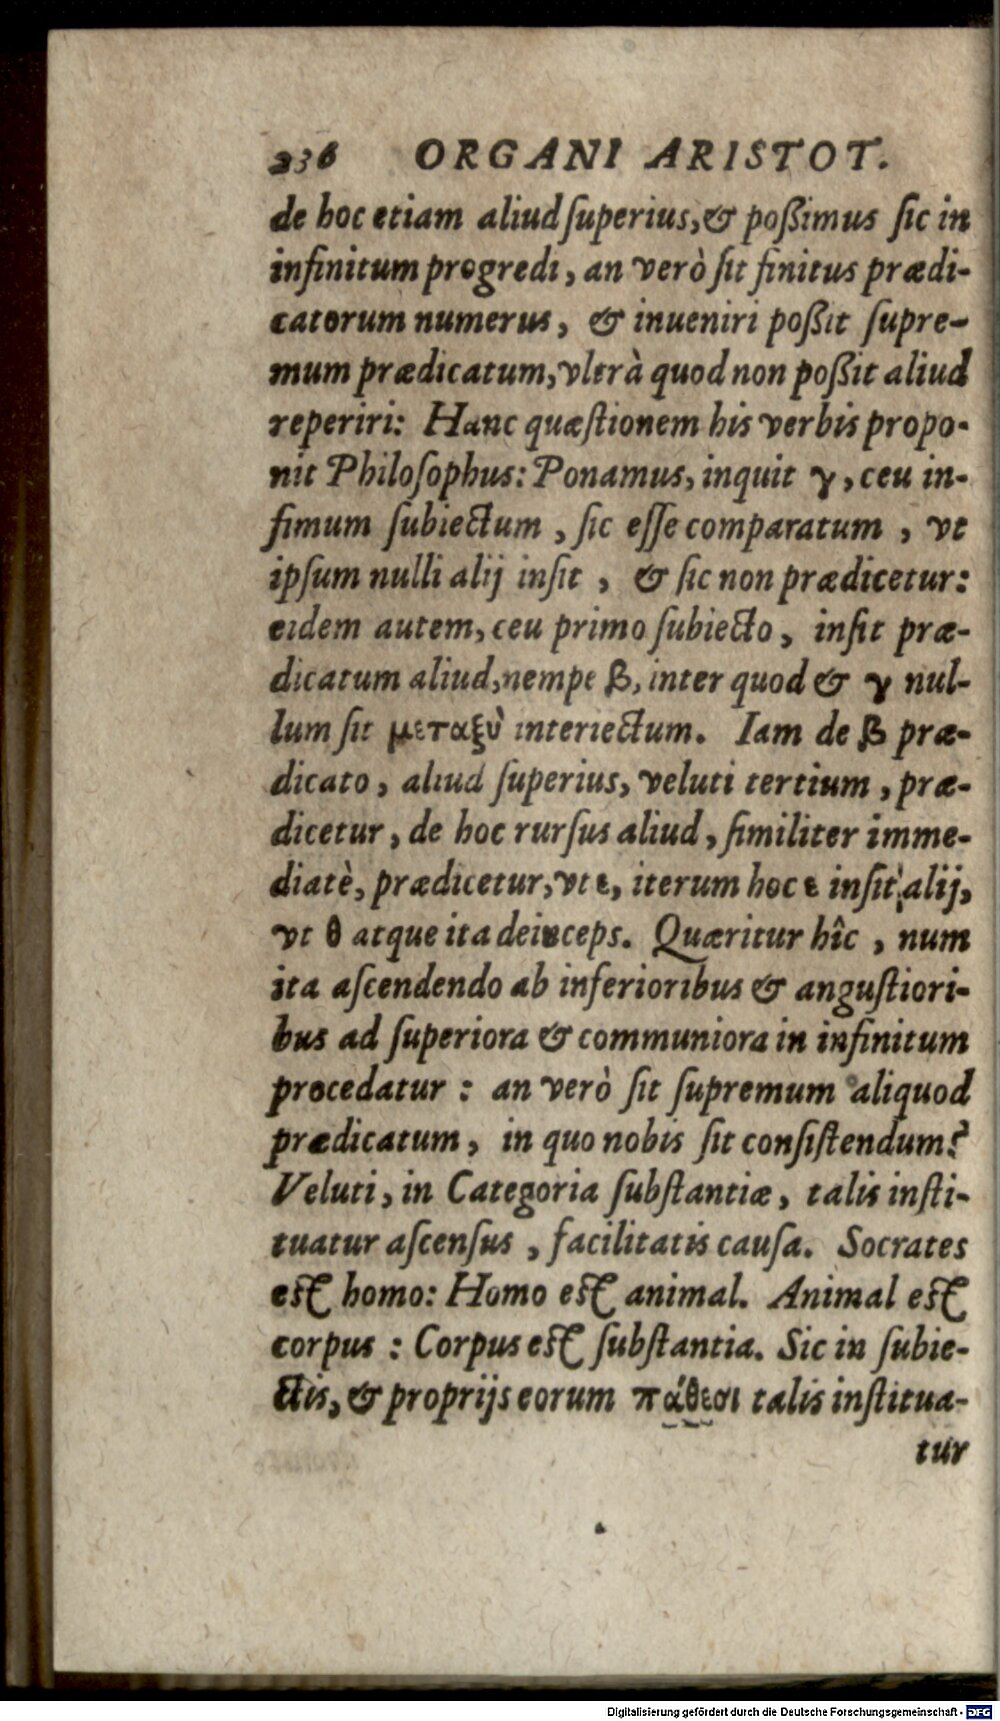 236 ORGANI ARISTOT.
de hoc etiam aliud ſuperius, & poßimus ſic in
infinitum progredi, an verò ſit finitus prædi-
catorum numerus, & inueniri poßit ſupre-
mum prædicatum, vltrà quod non poßit aliud
reperiri: Hanc quæſtionem his verbis propo-
nit Philoſophus: Ponamus, inquit γ, ceu in-
fimum ſubiectum, ſic eſſe comparatum, vt
ipſum nulli alij inſit, & ſic non prædicetur:
eidem autem, ceu primo ſubiecto, inſit præ-
dicatum aliud, nempe β, inter quod & γ nul-
lum ſit μεταξὺ interiectum. Iam de β præ-
dicato, aliud ſuperius, veluti tertium, præ-
dicetur, de hoc rurſus aliud, ſimiliter imme-
diatè, prædicetur, vt ε, iterum hoc ε inſit alij,
vt θ atque ita deinceps. Quæritur hîc, num
ita aſcendendo ab inferioribus & anguſtiori-
bus ad ſuperiora & communiora in infinitum
procedatur: an verò ſit ſupremum aliquod
prædicatum, in quo nobis ſit conſiſtendum?
Veluti, in Categoria ſubſtantiæ, talis inſti-
tuatur aſcenſus, facilitatis cauſa. Socrates
eſt homo: Homo eſt animal. Animal eſt
corpus: Corpus eſt ſubſtantia. Sic in ſubie-
ctis, & proprijs eorum πάθεσι talis inſtitua-
tur
Digitalisierung gefördert durch die Deutsche Forschungsgemeinschaft - DFG